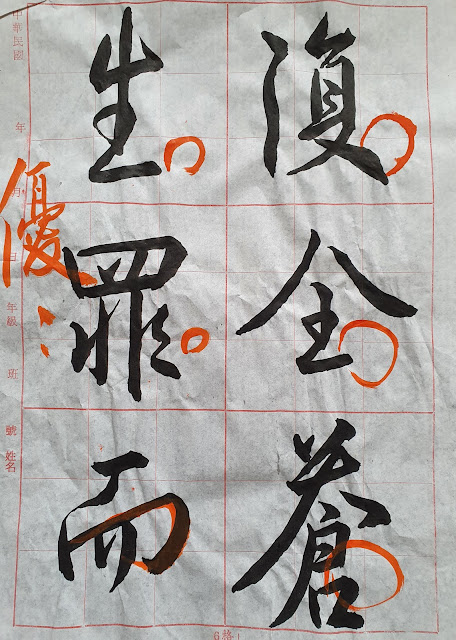 復全蒼
生罪而
優
中華民國 年 月 日 年級 班 號 姓名
6格